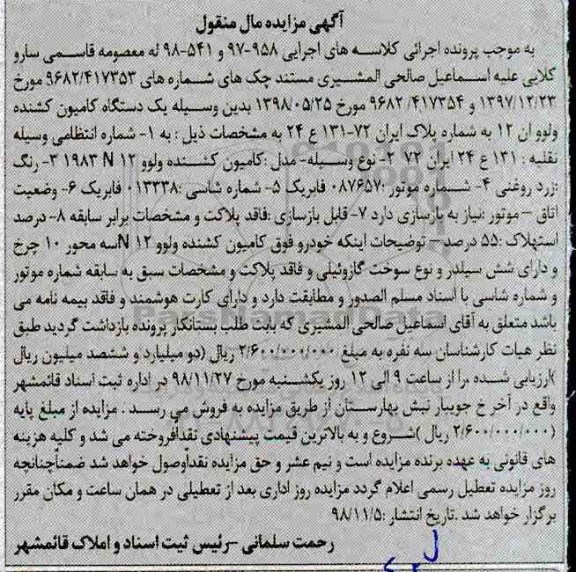 آگهی مزایده مال منقول
به موجب پرونده اجرائی کلاسه های اجرایی ۹۵۸-۹۷ و ۵۴۱-۹۸ له معصومه قاسمی سارو
کلایی علیه اسماعیل صالحی المشیری مستند چک های شماره های ۹۶۸۲/۴۱۷۳۵۳ مورخ
۱۳۹۷/۱۲/۲۳ و ۹۶۸۲/۴۱۷۳۵۴ مورخ ۱۳۹۸/۰۵/۲۵ بدین وسیله یک دستگاه کامیون کشنده
ولوو ان ۱۲ به شماره پلاک ایران ۷۲-۱۳۱ ع ۲۴ به مشخصات ذیل : به ۱- شماره انتظامی وسیله
نقلیه : ۱۳۱ ع ۲۴ ایران ۷۲ ۲- نوع وسیله- مدل :کامیون کشنده ولوو N ۱۲ 1983 ۳- رنگ
:زرد روغنی ۴- شماره موتور :۰۸۷۶۵۷ فابریک ۵- شماره شاسی :۰۱۳۳۳۸ فابریک ۶- وضعیت
اتاق – موتور :نیاز به بازسازی دارد ۷- قابل بازسازی :فاقد پلاکت و مشخصات برابر سابقه ۸- درصد
استهلاک :۵۵ درصد – توضیحات اینکه خودرو فوق کامیون کشنده ولوو N ۱۲سه محور ۱۰ چرخ
و دارای شش سیلندر و نوع سوخت گازوئیلی و فاقد پلاکت و مشخصات سبق به سابقه شماره موتور
و شماره شاسی با اسناد مسلم الصدور و مطابقت دارد و دارای کارت هوشمند و فاقد بیمه نامه می
باشد متعلق به آقای اسماعیل صالحی المشیری که بابت طلب بستانکار پرونده بازداشت گردید طبق
نظر هیات کارشناسان سه نفره به مبلغ ۲/۶۰۰/۰۰۰/۰۰۰ ریال (دو میلیارد و ششصد میلیون ریال
)ارزیابی شده ،را از ساعت ۹ الی ۱۲ روز یکشنبه مورخ ۹۸/۱۱/۲۷ در اداره ثبت اسناد قائمشهر
واقع در آخر خ جویبار نبش بهارستان از طریق مزایده به فروش می رسد . مزایده از مبلغ پایه
(۲/۶۰۰/۰۰۰/۰۰۰ ریال )شروع و به بالاترین قیمت پیشنهادی نقدأفروخته می شد و کلیه هزینه
های قانونی به عهده برنده مزایده است و نیم عشر و حق مزایده نقداًوصول خواهد شد ضمناًچنانچه
روز مزایده تعطیل رسمی اعلام گردد مزایده روز اداری بعد از تعطیلی در همان ساعت و مکان مقرر
برگزار خواهد شد .تاریخ انتشار :۹۸/۱۱/۵
رحمت سلمانی -رئیس ثبت اسناد و املاک قائمشهر